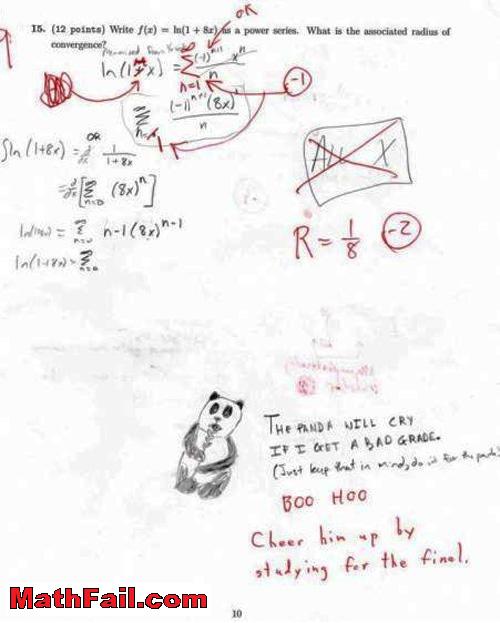 15. (12 points) Write f(x) = ln(1 + 8x) as a power series. What is the associated radius of
convergence?
OK
n=1
n
-1
(-1)ⁿ⁺¹ (8x)
n
OR
ln(1+8x) = 1/(1+8x)
[∑ (8x)ⁿ]
n=0
n-1 (8x)ⁿ⁻¹
ln(1+8x) = ∑
n=0
R = 1/8
-2
THE PANDA WILL CRY
IF I GET A BAD GRADE.
(Just keep that in mind, do it for the panda)
BOO HOO
Cheer him up by
studying for the final.
MathFail.com
10